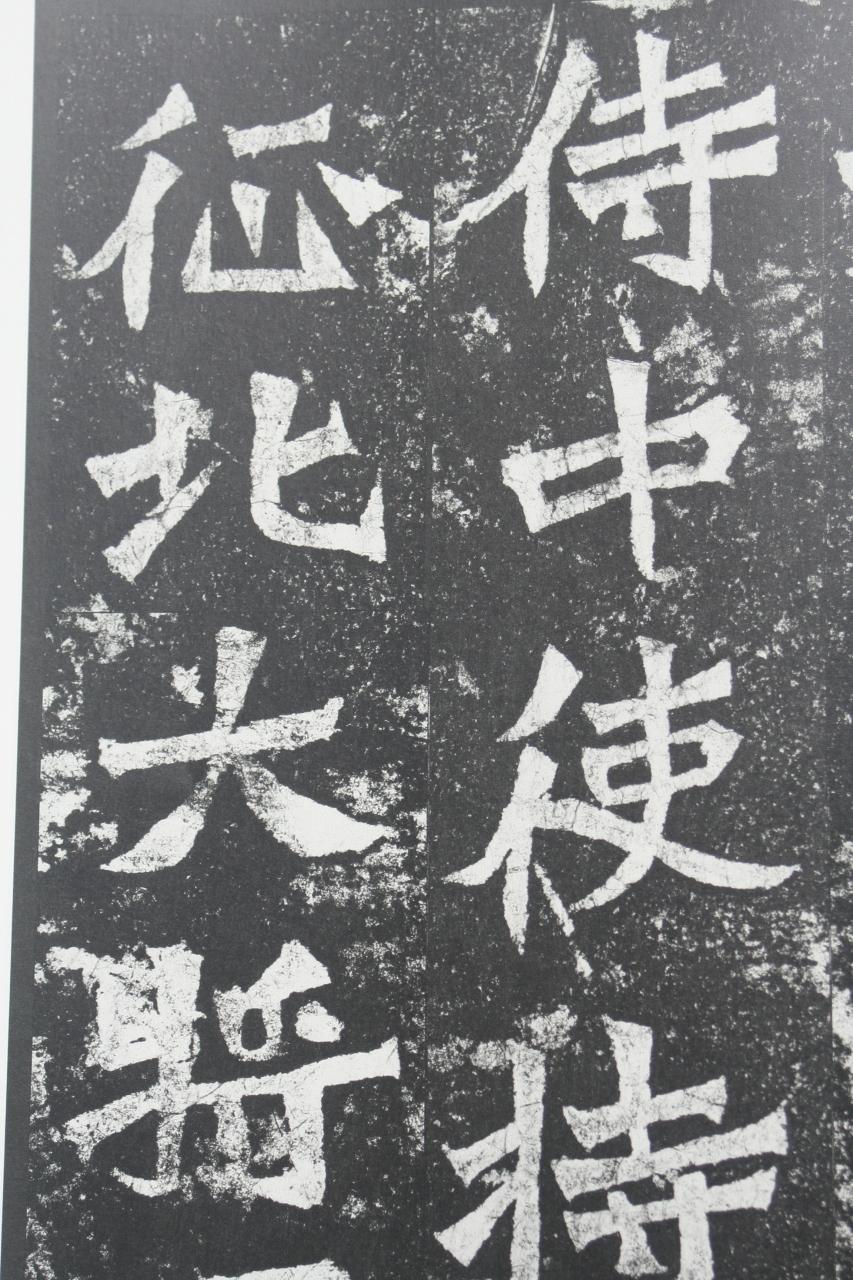 侍中使持
征北大將